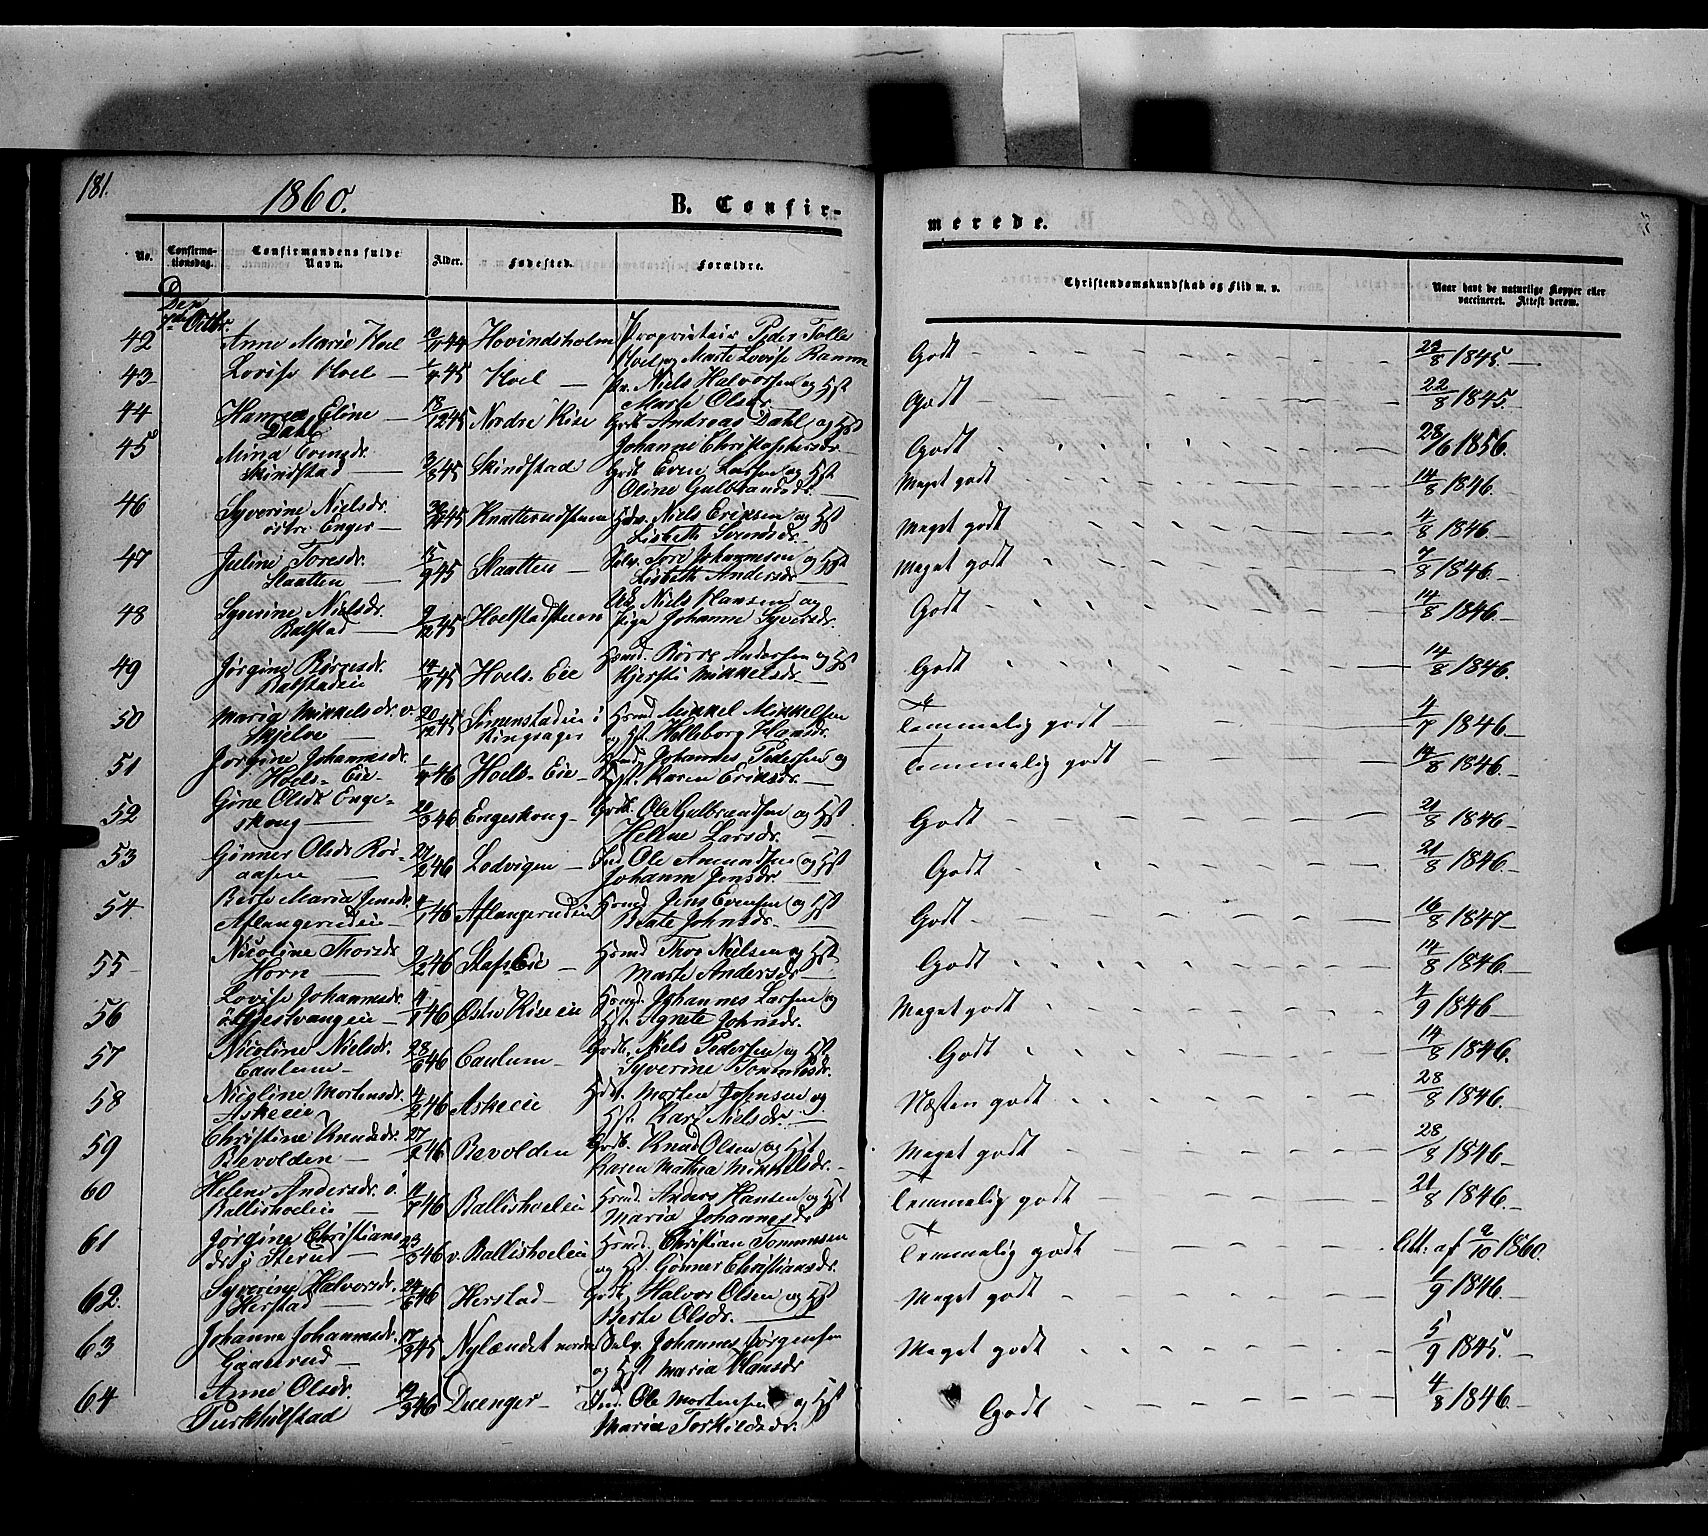 181.
1860.
B. Confirmerede.
No.
Confirmationsdag.
Confirmandens fulde Navn.
Alder.
Fødested.
Forældre.
Christendomskundskab og Flid m. v.
Naar havt de naturlige Kopper eller vaccineret. Attest derom.
Den 7de Octbr.
42 Anne Marie Hoel 44 Hovindsholm Proprietair Peder Tolle Hoel og Marte Lovise Ramm Godt 23/8 1845.
43 Lovise Hoel 1/4 45 Hoel Niels Halvorsen og Hst Marte Olsdr. Godt 22/8 1845.
44 Hanna Eline Dahl 18/12 45 Nordre Rise Grdb. Andreas Dahl og Hst Johanne Christophersdr. Godt 28/6 1856.
45 Mina Evensdr. Skindstad 3/8 45 Skindstad Grdb. Even Larsen og Hst Oline Gulbrandsdr. Meget godt 14/8 1846.
46 Syverine Nielsdr. østre Enger 45 Knatterudstuen Niels Eriksen og Hst Lisbeth Svendsdr. Meget godt 4/8 1846.
47 Juline Toresdr. Slaatten 15/9 45 Slaatten Selv. Tore Johannesen og Hst Lisbeth Andersdr. Meget godt 7/8 1846.
48 Syverine Nielsdr. Balstad 9/12 45 Hoelstadstuen Niels Hansen og Pige Johanne Syversdr. Godt 14/8 1846.
49 Jørgine Børresdr. Balstadeie 14/11 45 Hoels Eie Hsmd. Børre Andersen og Hst Kjersti Mikkelsdr. Godt 14/8 1846.
50 Maria Mikkelsdr. v. Skjelve 20/12 45 Simenstadeie i Ringsager Hsmd. Mikkel Mikkelsen og Hst. Helleborg Hansdr. Temmelig godt 1846.
51 Jørgine Johannesdr. Hoels Eie 1/4 46 Hoels Eie Hsmd. Johannes Pedersen og Hst. Karen Eriksdr. Temmelig godt 14/8 1846.
52 Gine Olsdr. Engeskoug 20/3 46 Engeskoug Grdb. Ole Gulbrandsen og Hst Helene Larsdr. Godt 21/8 1846
53 Gønner Olsdr. Roraasen 21/2 46 Lodvigen Ind. Ole Amundsen og Hst Johanne Jensdr. Godt 21/8 1846.
54 Berte Maria Jensdr. Aflangerudeie 46 Aflangerudeie Hsmd. Jens Evensen og Hst Beate Johnsdr. Godt 16/8 1847
55 Nicoline Thorsdr. Horn 9/2 46 Stafs Eie Hsmd. Thor Nielsen og Hst Marte Andersdr. Godt 14/8 1846.
56 Lovise Johannesdr. ø. Gjestvangeie 46 Østre Riseeie Hsmd. Johannes Larsen og Hst. Agnete Johnsdr. Meget godt 4/9 1846
57 Nicoline Nielsdr. Caulum 28/6 46 Caulum Grdb. Niels Pedersen og Hst Syverine Tommesdr. Godt 14/8 1846.
58 Nicoline Mortensdr. Askeeie 4/2 46 Askeeie Morten Johnsen og Hst. Kari Nielsdr. Næsten godt 28/8 1846.
59 Christine Knudsdr. Bevolden 27/2 46 Bevolden Grdb. Knud Olsen og Hst Karen Mathea Mikkelsdr. Meget godt 28/8 1846.
60 Helene Andersdr. v. Ballishoeleie 46 Ballishoeleie Hsmd. Anders Hansen og Hst Maria Johannesdr. Temmelig godt 21/8 1846.
61 Jørgine Christiansdr. Sterud 23/3 46 v. Ballishoeleie Hsmd. Christian Tommesen og Hst. Gønner Christiansdr. Temmelig godt Att. af 2/10 1860.
62. Syverine Halvorsdr. Herstad 24/6 46 Herstad Grdb. Halvor Olsen og Hst Berte Olsdr. Meget godt 1/9 1846.
63 Johanne Johannesdr. Gaaserud 17/3 45 Nylændet nordre Selv. Johannes Jørgensen og Hst Maria Hansdr Meget godt 5/9 1845.
64 Anne Olsdr. Turkhilstad 12/3 46 Duenger Ind. Ole Mortensen og Hst Maria Torkildsdr. Godt 4/8 1846.